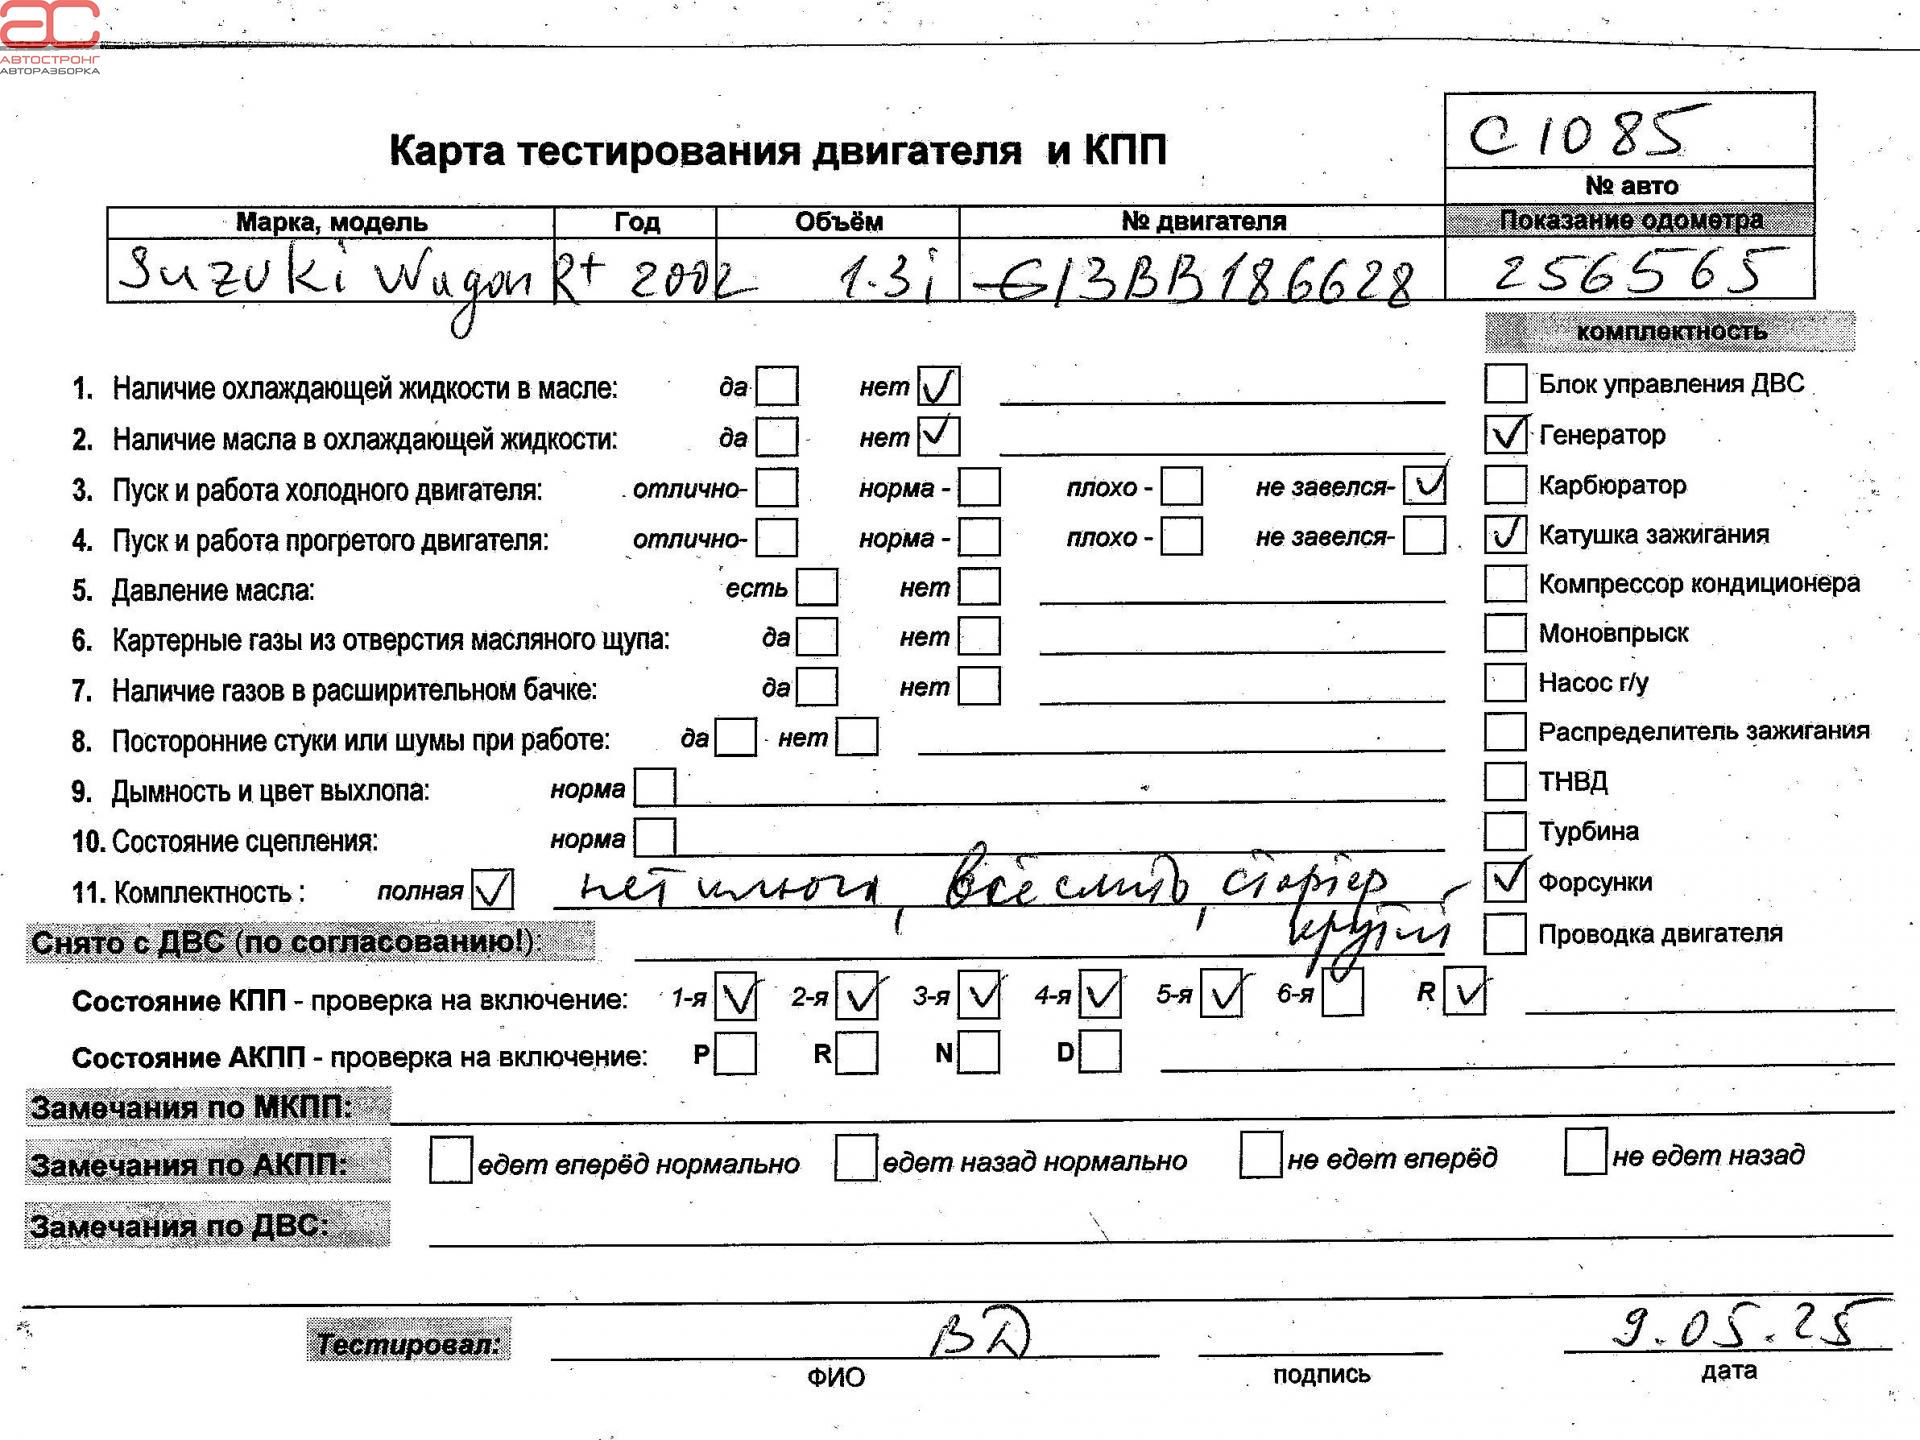 АС
АВТОСТРОНГ
АВТОРАЗБОРКА
C1085
Карта тестирования двигателя и КПП
№ авто
Марка, модель Год Объём № двигателя Показание одометра
Suzuki Wagon R+ 2002 1.3i G13BB186628 256565
комплектность
1. Наличие охлаждающей жидкости в масле: да нет ✓ Блок управления ДВС
2. Наличие масла в охлаждающей жидкости: да нет ✓ ✓ Генератор
3. Пуск и работа холодного двигателя: отлично- норма - плохо - не завелся- ✓ Карбюратор
4. Пуск и работа прогретого двигателя: отлично- норма - плохо - не завелся- ✓ Катушка зажигания
5. Давление масла: есть нет Компрессор кондиционера
6. Картерные газы из отверстия масляного щупа: да нет Моновпрыск
7. Наличие газов в расширительном бачке: да нет Насос г/у
8. Посторонние стуки или шумы при работе: да нет Распределитель зажигания
9. Дымность и цвет выхлопа: норма ТНВД
10. Состояние сцепления: норма Турбина
11. Комплектность : полная ✓ нет , всё , стартер ✓ Форсунки
крутил
Снято с ДВС (по согласованию!): Проводка двигателя
Состояние КПП - проверка на включение: 1-я ✓ 2-я ✓ 3-я ✓ 4-я ✓ 5-я ✓ 6-я R ✓
Состояние АКПП - проверка на включение: P R N D
Замечания по МКПП:
Замечания по АКПП: едет вперёд нормально едет назад нормально не едет вперёд не едет назад
Замечания по ДВС:
Тестировал: ВД 9.05.25
ФИО подпись дата